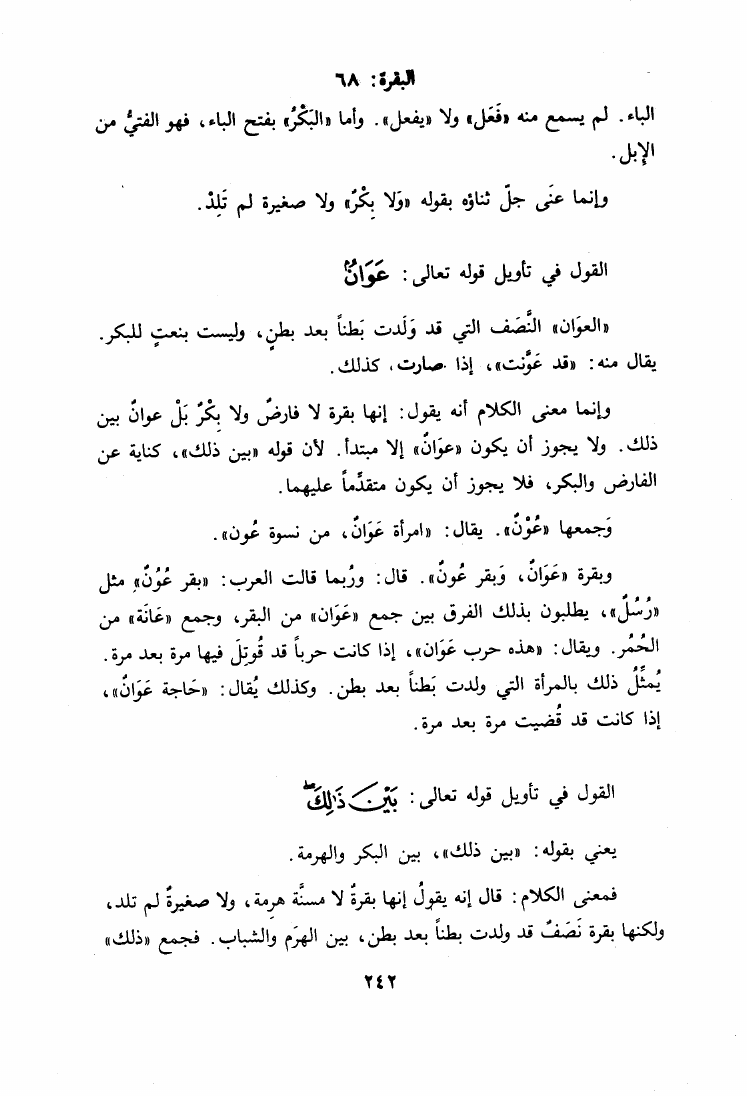 البقرة: ٦٨
الباء. لم يسمع منه «فَعَل» ولا «يفعل». وأما «البَكْرُ» بفتح الباء، فهو الفتيُّ من
الإبل.
وإنما عنَى جلّ ثناؤه بقوله «وَلا بِكْرٌ» ولا صغيرة لم تَلِدْ.
القول في تأويل قوله تعالى: عَوَانٌ
«العوَان» النَّصَف التي قد وَلَدت بَطناً بعد بطنٍ، وليست بنعتٍ للبكر.
يقال منه: «قد عَوَّنت»، إذا صارت، كذلك.
وإنما معنى الكلام أنه يقول: إنها بقرة لا فارضٌ ولا بِكْرٌ بَلْ عوانٌ بين
ذلك. ولا يجوز أن يكون «عوَانٌ» إلا مبتدأ. لأن قوله «بين ذلك»، كناية عن
الفارض والبكر، فلا يجوز أن يكون متقدَّماً عليهما.
وَجمعها «عُوْنٌ». يقال: «امرأة عَوَانٌ، من نسوة عُون».
وبقرة «عَوَانٌ، وَبقر عُونٌ». قال: ورُبما قالت العرب: «بقر عُوُنٌ» مثل
«رُسُلٌ»، يطلبون بذلك الفرق بين جمع «عَوَان» من البقر، وجمع «عَانَة» من
الحُمُر. ويقال: «هذه حرب عَوَان»، إذا كانت حرباً قد قُوتِلَ فيها مرة بعد مرة.
يُمثِّلُ ذلك بالمرأة التي ولدت بَطناً بعد بطن. وكذلك يُقال: «حَاجة عَوَانٌ»،
إذا كانت قد قُضيت مرة بعد مرة.
القول في تأويل قوله تعالى: بَيْنَ ذَٰلِكَ ۖ
يعني بقوله: «بين ذلك»، بين البكر والهرمة.
فمعنى الكلام: قال إنه يقولُ إنها بقرةٌ لا مسنَّة هرِمة، ولا صغيرةٌ لم تلد،
ولكنها بقرة نَصَفٌ قد ولدت بطناً بعد بطن، بين الهرَم والشباب. فجمع «ذلك»
٢٤٢